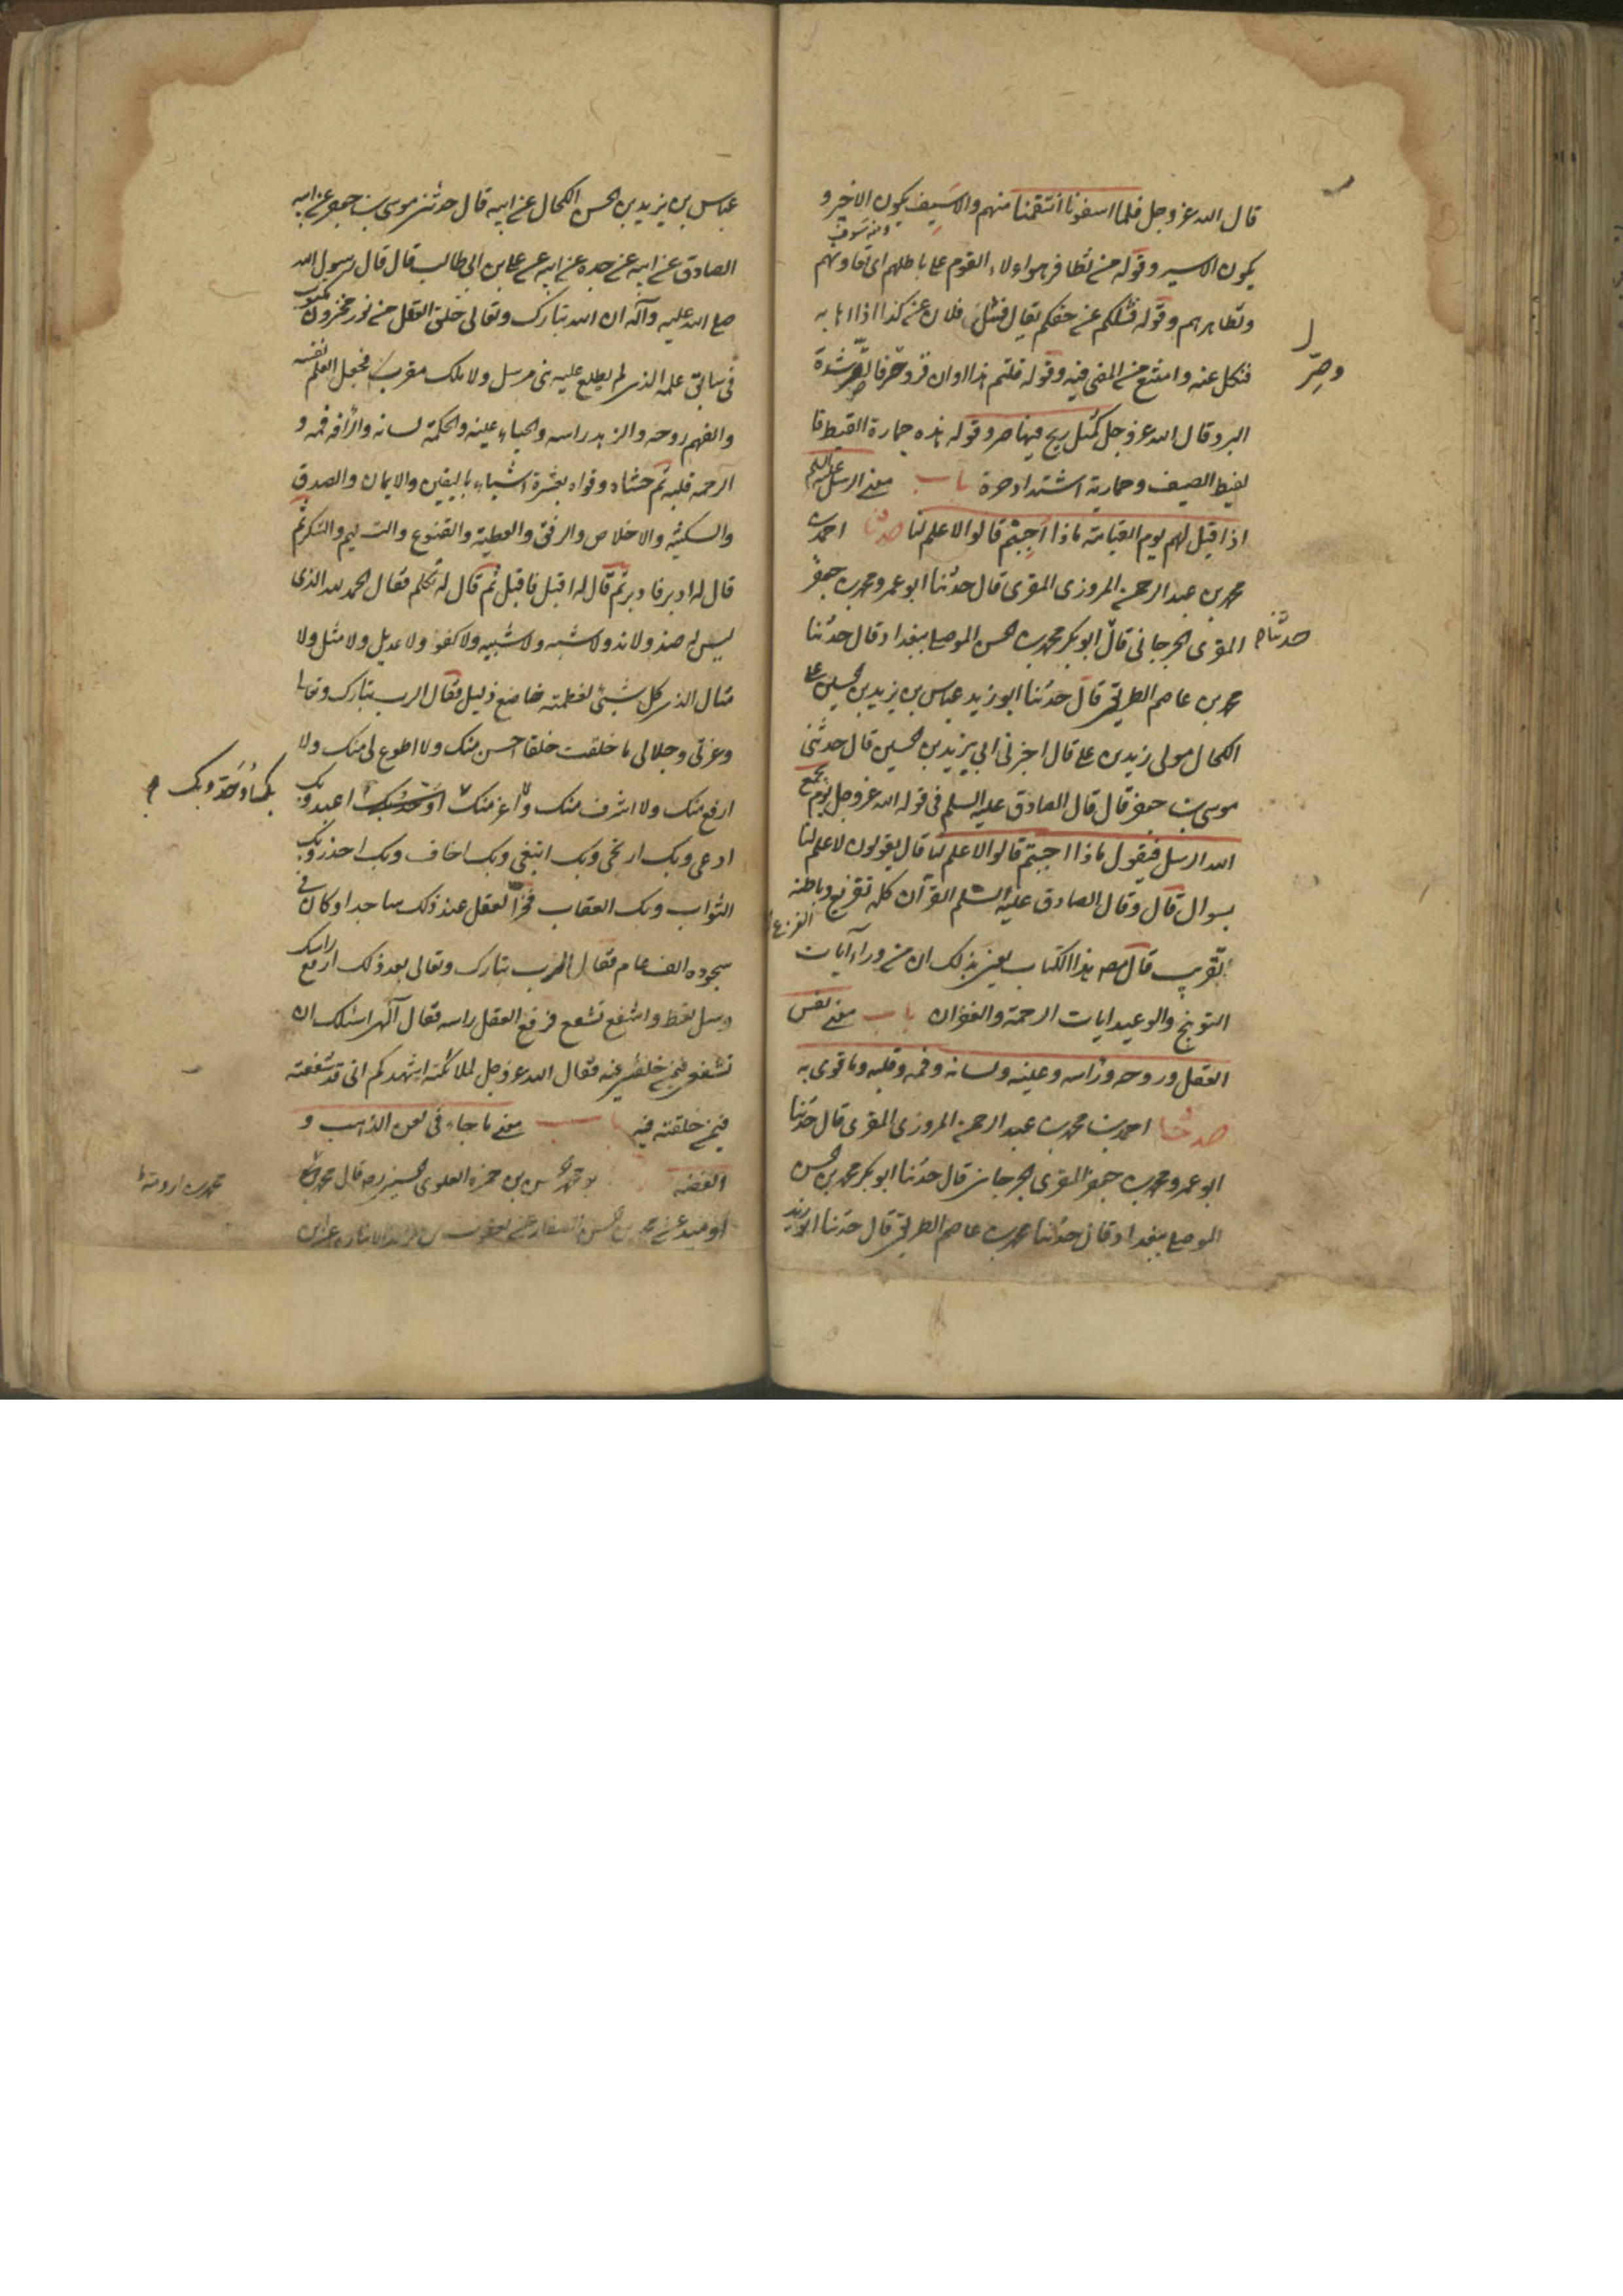 قال الله عز وجل فلما اسفونا انتقمنا منهم والاسيف يكون الاجير و
يكون الاسير وقوله من تظافر هواولاء القوم على باطلهم اى تعاونهم
وتظاهرهم وقوله فشلكم عن حقكم يقال فشل فلان عن كذا اذا هابه
فنكل عنه وامتنع من المضى فيه وقوله قلتم هذا اوان قر وصر فالصر شدة
وصر
البرد قال الله عز وجل كمثل ريح فيها صر وقوله هذه حمارة القيظ فا
لقيظ الصيف وحمارته اشتداد حره باب معنى الرسل عليه السلم
اذا قيل لهم يوم القيامة ماذا اجبتم قالوا لا علم لنا حدثنا احمد بن
محمد بن عبد الرحمن المروزى المقرى قال حدثنا ابو عمرو محمد بن جعفر
المقرى الجرجانى قال ابو بكر محمد بن الحسن الموصلى ببغداد قال حدثنا
حدثنا
محمد بن عاصم الطريقى قال حدثنا ابو زيد عباس بن يزيد بن الحسين على
الكحال مولى زيد بن على قال اخبرنى ابى يزيد بن الحسين قال حدثنى
موسى بن جعفر قال قال الصادق عليه السلم فى قوله الله عز وجل يوم يجمع
الله الرسل فيقول ماذا اجبتم قالوا لا علم لنا قال يقولون لا علم لنا
بسوال قال وقال الصادق عليه السلم القرآن كله تقريع وباطنه
تقريب قال مصه هذا الكتاب يعنى بذلك ان من وراء آيات
التوبيخ والوعيد ايات الرحمة والغفران باب معنى نفس
العقل وروحه وراسه وعينه ولسانه وفمه وقلبه وما قوى به
حدثنا احمد بن محمد بن عبد الرحمن المروزى المقرى قال حدثنا
ابو عمرو محمد بن جعفر المقرى الجرجانى قال حدثنا ابو بكر محمد بن الحسن
الموصلى ببغداد قال حدثنا محمد بن عاصم الطريقى قال حدثنا ابو زيد
عباس بن يزيد بن الحسن الكحال عن ابيه قال حدثنى موسى بن جعفر عن ابيه
الصادق عن ابيه عن جده عن ابيه عن على بن ابى طالب قال قال رسول الله
صلى الله عليه وآله ان الله تبارك وتعالى خلق العقل من نور مخزون مكنون
فى سابق علمه الذى لم يطلع عليه نبى مرسل ولا ملك مقرب فجعل العلم نفسه
والفهم روحه والزهد راسه والحياء عينه والحكمة لسانه والرافه فمه و
الرحمه قلبه ثم حشاه وقواه بعشرة اشياء باليقين والايمان والصدق
والسكينة والاخلاص والرفق والعطية والقنوع والتسليم والشكر ثم
قال له ادبر فادبر ثم قال له اقبل فاقبل ثم قال له تكلم فقال الحمد لله الذى
ليس له ضد ولا ند ولا شبه ولا شبيه ولا كفو ولا عديل ولا مثل ولا
مثال الذى كل شئ لعظمته خاضع ذليل فقال الرب تبارك وتعالى
وعزتى وجلالى ما خلقت خلقا احسن منك ولا اطوع لى منك ولا
ارفع منك ولا اشرف منك ولا اعز منك اعبد وبك
بك اوحد وبك
ادعى وبك ارتجى وبك ابتغى وبك اخاف وبك احذر وبك
الثواب وبك العقاب فخر العقل عند ذلك ساجدا وكان فى
سجوده الف عام فقال الرب تبارك وتعالى بعد ذلك ارفع راسك
وسل تعط واشفع تشفع فرفع العقل راسه فقال آلهى اسئلك ان
تشفعنى فيمن خلقتنى فيه فقال الله عز وجل لملائكته اشهدكم انى قد شفعته
فيمن خلقته فيه باب معنى ما جاء فى لعن الذهب و
الفضه بو محمد الحسن بن حمزه العلوى الحسينى رضه قال محمد بن
اوميد عن محمد بن الحسن الصفار عن يعقوب بن يزيد الانبارى عن ابن